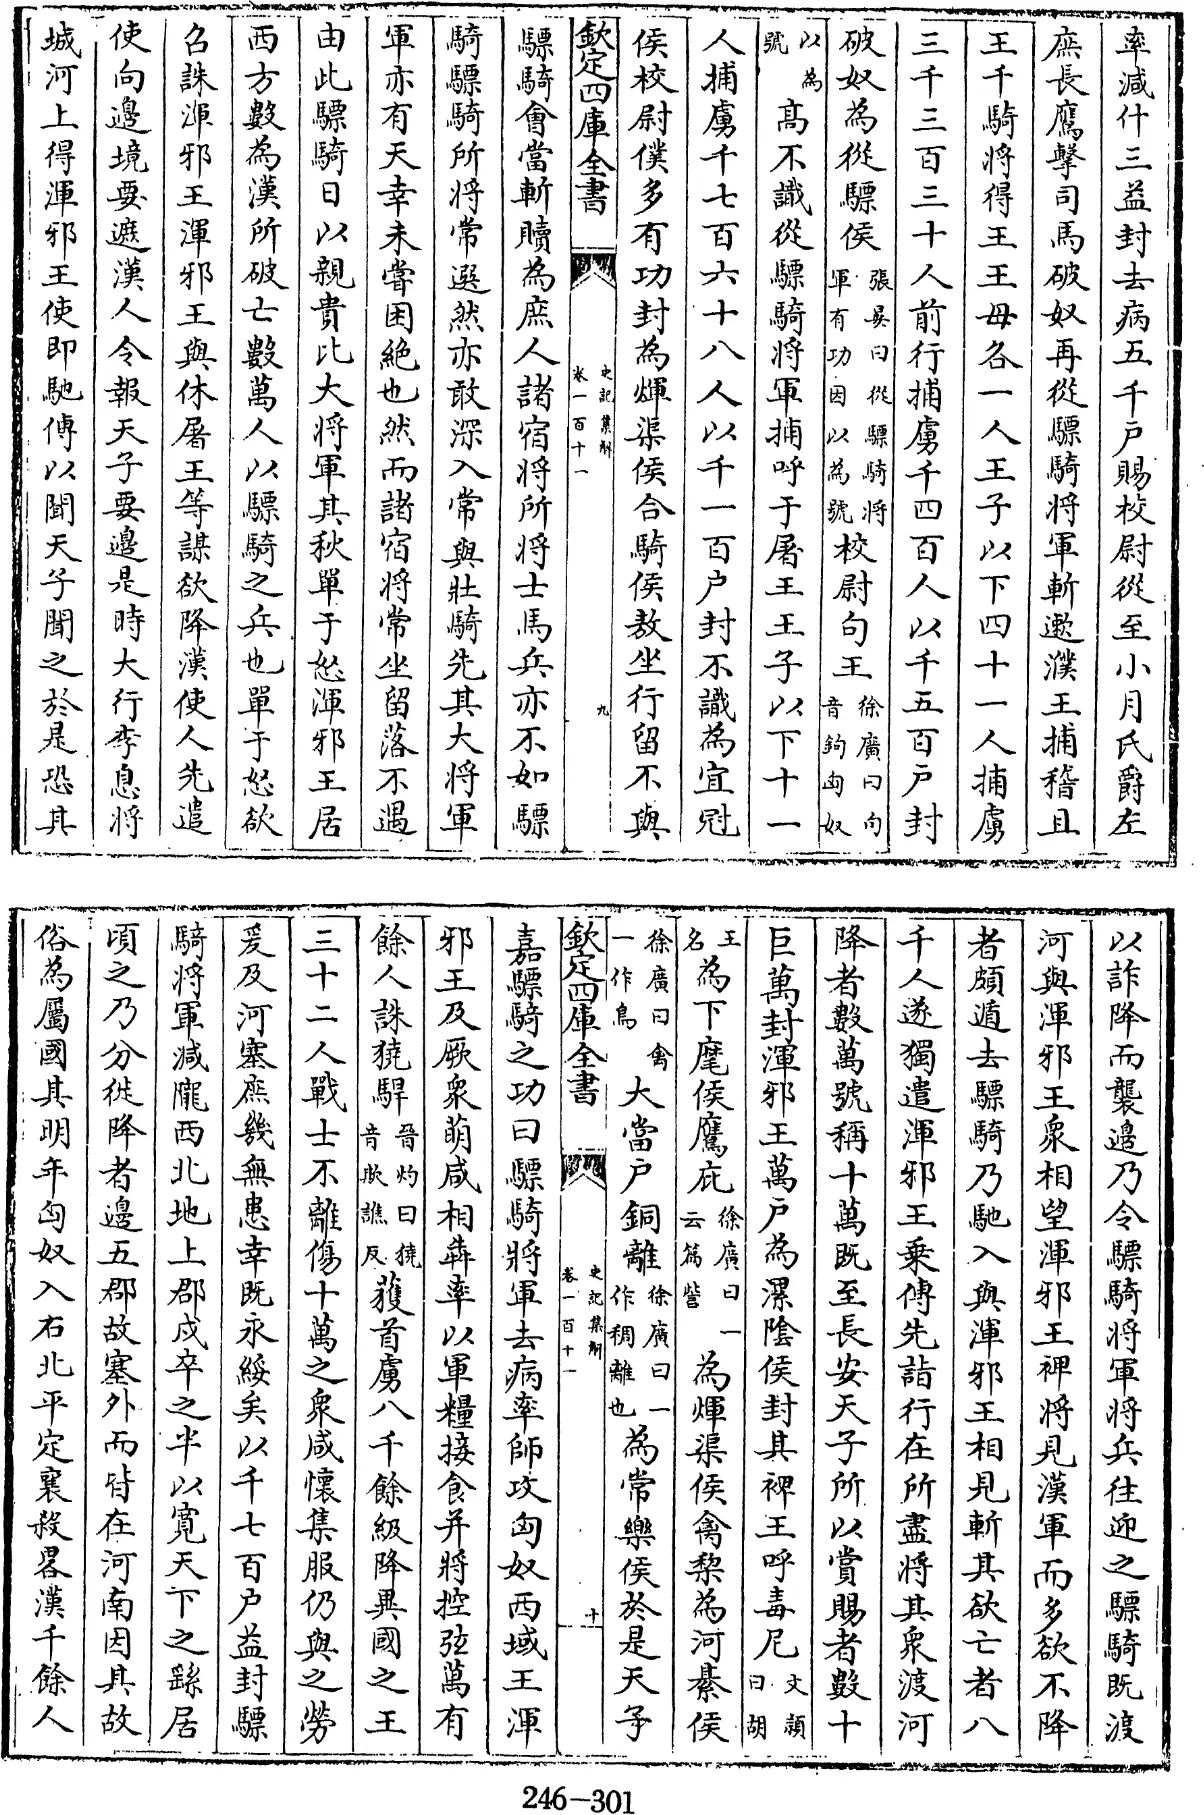 率減什三益封去病五千户賜校尉從至小月氏爵左
庶長鷹擊司馬破奴再從驃騎將軍斬遬濮王捕稽且
王千騎將得王王母各一人王子以下四十一人捕虜
三千三百三十人前行捕虜千四百人以千五百户封
破奴為從驃侯張晏曰從驃騎將軍有功因以為號校尉句王徐廣曰句音鉤匈奴
以為號高不識從驃騎將軍捕呼于屠王王子以下十一
人捕虜千七百六十八人以千一百户封不識為宜冠
侯校尉僕多有功封為煇渠侯合騎侯敖坐行留不與
欽定四庫全書 史記集解 卷一百十一 九
驃騎會當斬贖為庶人諸宿將所將士馬兵亦不如驃
騎驃騎所將常選然亦敢深入常與壯騎先其大將軍
軍亦有天幸未嘗困絶也然而諸宿將常坐留落不遇
由此驃騎日以親貴比大將軍其秋單于怒渾邪王居
西方數為漢所破亡數萬人以驃騎之兵也單于怒欲
召誅渾邪王渾邪王與休屠王等謀欲降漢使人先遣
使向邊境要遮漢人令報天子要邊是時大行李息將
城河上得渾邪王使即馳傳以聞天子聞之於是恐其
以詐降而襲邊乃令驃騎將軍將兵往迎之驃騎既渡
河與渾邪王衆相望渾邪王裨將見漢軍而多欲不降
者頗遁去驃騎乃馳入與渾邪王相見斬其欲亡者八
千人遂獨遣渾邪王乗傳先詣行在所盡將其衆渡河
降者數萬號稱十萬既至長安天子所以賞賜者數十
巨萬封渾邪王萬户為漯陰侯封其裨王呼毒尼文穎曰胡
王名為下麾侯鷹庇徐廣曰一云篇訾為煇渠侯禽棃為河綦侯
徐廣曰禽一作烏大當户銅離徐廣曰一作稠離也為常樂侯於是天子
欽定四庫全書 史記集解 卷一百十一 十
嘉驃騎之功曰驃騎將軍去病率師攻匈奴西域王渾
邪王及厥衆萌咸相犇率以軍糧接食并將控弦萬有
餘人誅獟駻晉灼曰獟音欺譙反獲首虜八千餘級降異國之王
三十二人戰士不離傷十萬之衆咸懷集服仍與之勞
爰及河塞庶幾無患幸既永綏矣以千七百户益封驃
騎將軍減隴西北地上郡戍卒之半以寛天下之繇居
頃之乃分徙降者邊五郡故塞外而皆在河南因其故
俗為屬國其明年匈奴入右北平定襄殺畧漢千餘人
246-301